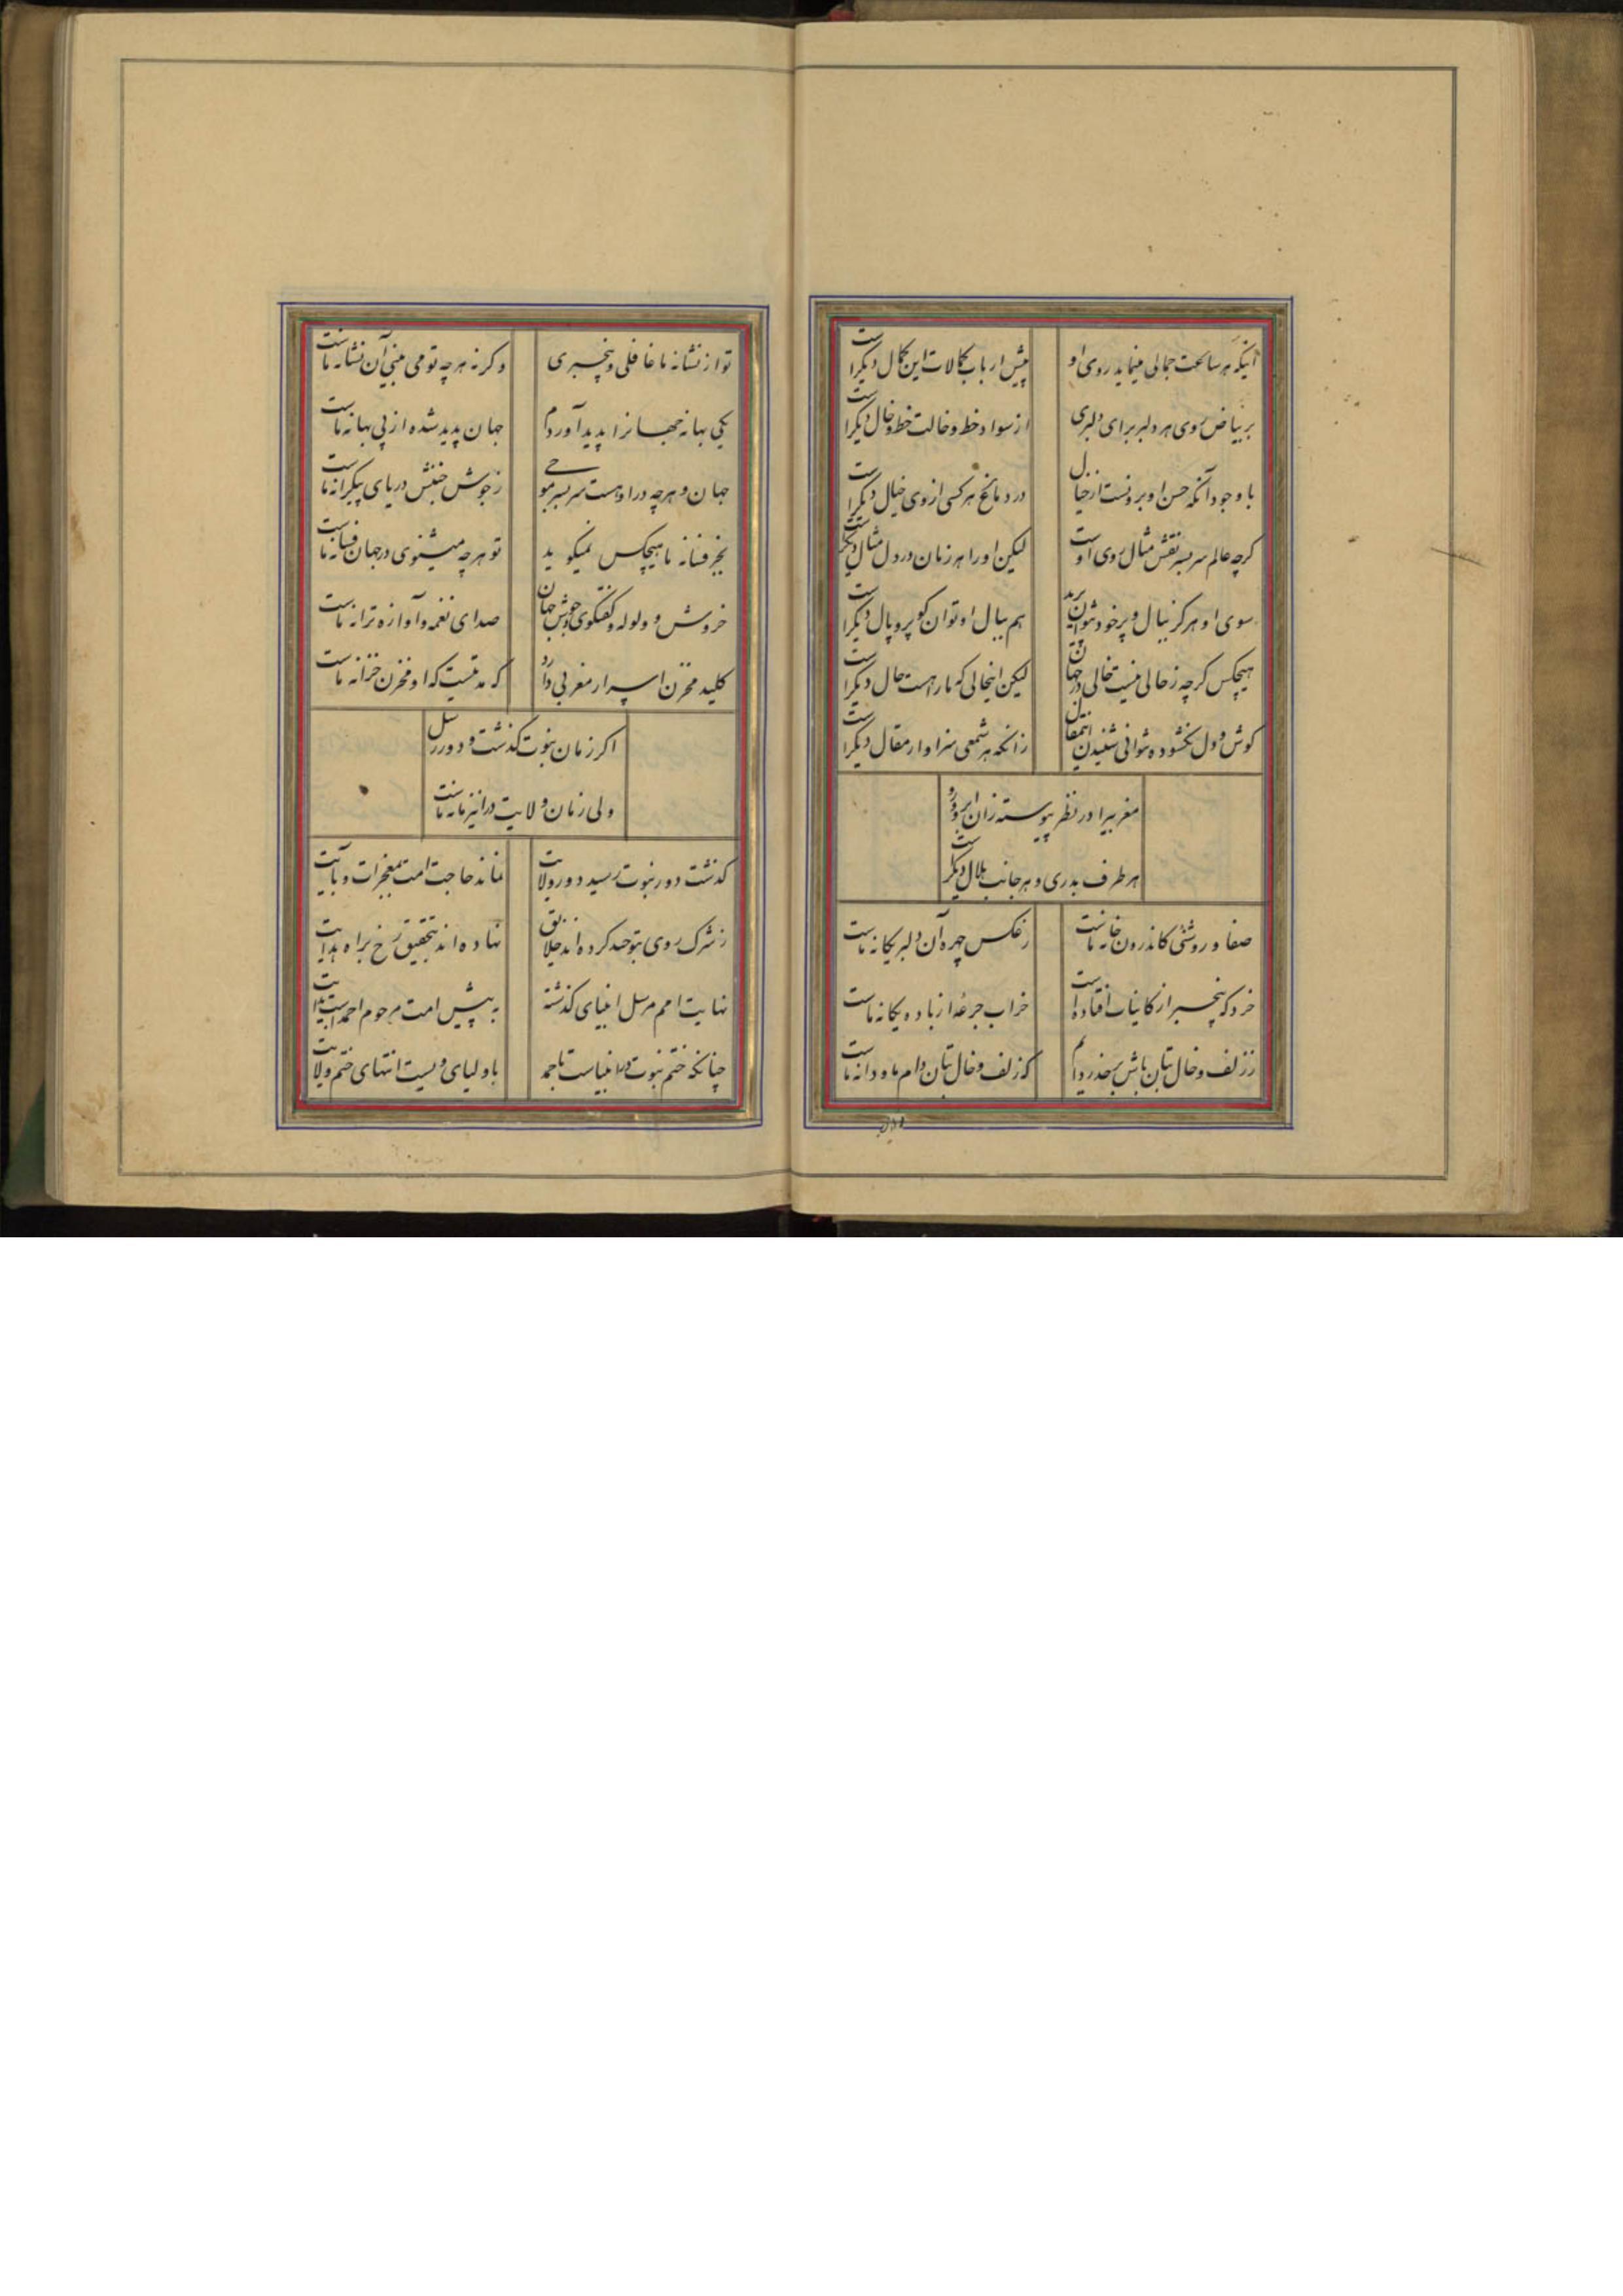 آنکه هر ساعت جمالی مینماید روی او
پیش ارباب کمالات این کمال دیگر است
بر بیاض روی هر دلبر برای دلبری
از سواد خط و خالت خط و خال دیگر است
با وجود آنکه حسن او برونست از خیال
در دماغ هر کسی از وی خیال دیگر است
کرچه عالم سر بسر نقش مثال روی اوست
لیکن او را هر زمان در دل مثال دیگر است
سوی او هرکز ببال و پر خود نتوان پرید
هم ببال او توان کو پر و بال دیگر است
هیچکس کرچه ز حالی نیست خالی در جهان
لیکن اینحالی که ما راهست حال دیگر است
کوش و دل بکشوده شو آنی شنیدن این مقال
زانکه هر سمعی سزاوار مقال دیگر است
مغربیرا در نظر پیوسته زان ابرو و رو
هر طرف بدری و هر جانب هلال دیگر است
صفا و روشنی کاندرون خانه ماست
ز عکس چهره آن دلبر یکانه ماست
خرد که بیخبر از کاینات افتاده است
خراب جرعهٔ از باده یکانه ماست
ز زلف و خال بتان باش بر حذر دایم
که زلف و خال بتان دام ما و دانه ماست
تو از نشانه ما غافلی و بیخبری
وکرنه هرچه تو می بینی آن نشانه ماست
یکی بهانه جهانرا پدید آوردم
جهان پدید شده از پی بهانه ماست
جهان و هرچه در او هست سر بسر موجی
ز جوش جنبش دریای بیکرانه ماست
بجز فسانه ما هیچکس نمیکوید
تو هرچه میشنوی در جهان فسانه ماست
خروش و ولوله و کفتکوی و جوش جهان
صدای نغمه و آوازه ترانه ماست
کلید مخزن اسرار مغربی دارد
که مدتیست که او مخزن خزانه ماست
اکر زمان نبوت کذشت و دور رسل
ولی زمان ولایت در این زمانه ماست
کذشت دور نبوت رسید دور ولایت
نماند حاجت امت بمعجزات و بآیت
ز شرک روی بتوحید کرده اند خلایق
نهاده اند بتحقیق رخ براه هدایت
نهایت امم مرسل انبیای کذشته
به پیش امت مرحوم احمد است بدایت
چنانکه ختم نبوت در انبیاست باحمد
باولیای ویست انتهای ختم ولایت